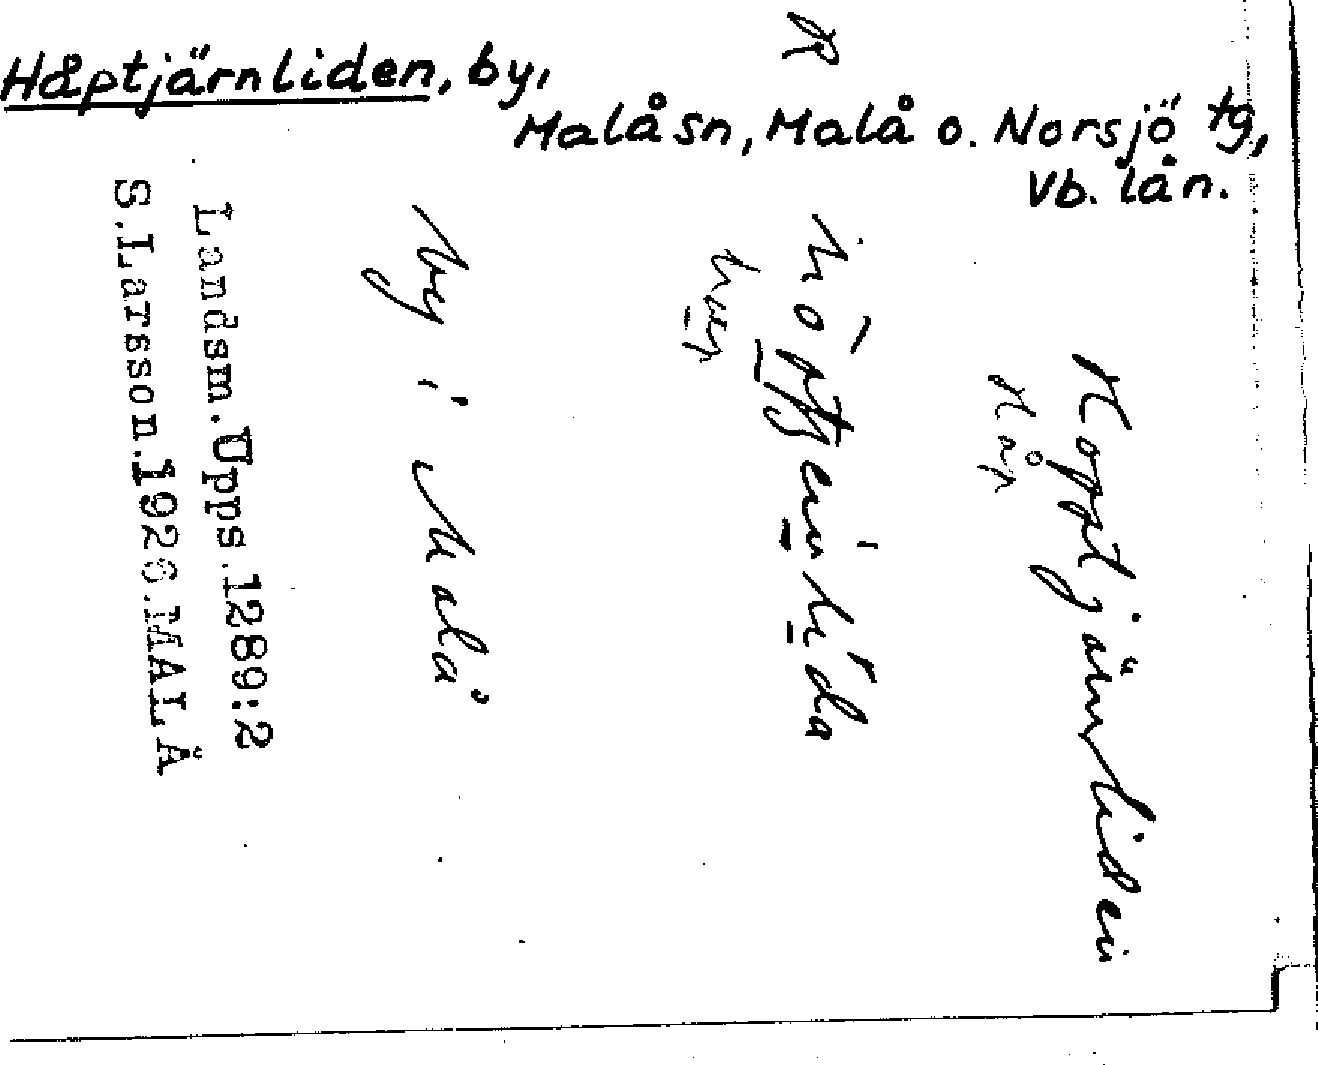 Håptjärnliden, by,
Malå sn, Malå o. Norsjö tg,
Vb. län.
Hopptjärnliden
Håp
by i Malå
Landsm.Upps.1289:2
S.Larsson.1926.MALÅ